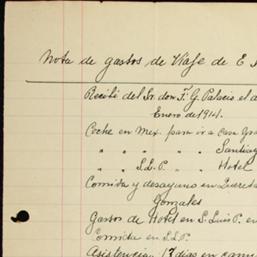 Nota de gastos de Viaje de E
Recibí del Sr. don F. G. Palacio el d
Enero de 1941.
Coche en Mex. para ir a casa Gra
" " " Santiag
" " S.L.P. " Hotel
Comida y desayuno en Quereta
Gonzales
Gastos de Hotel en S. Luis P. en
Comida en S.L.P.
Asistencia 13 dias en cam